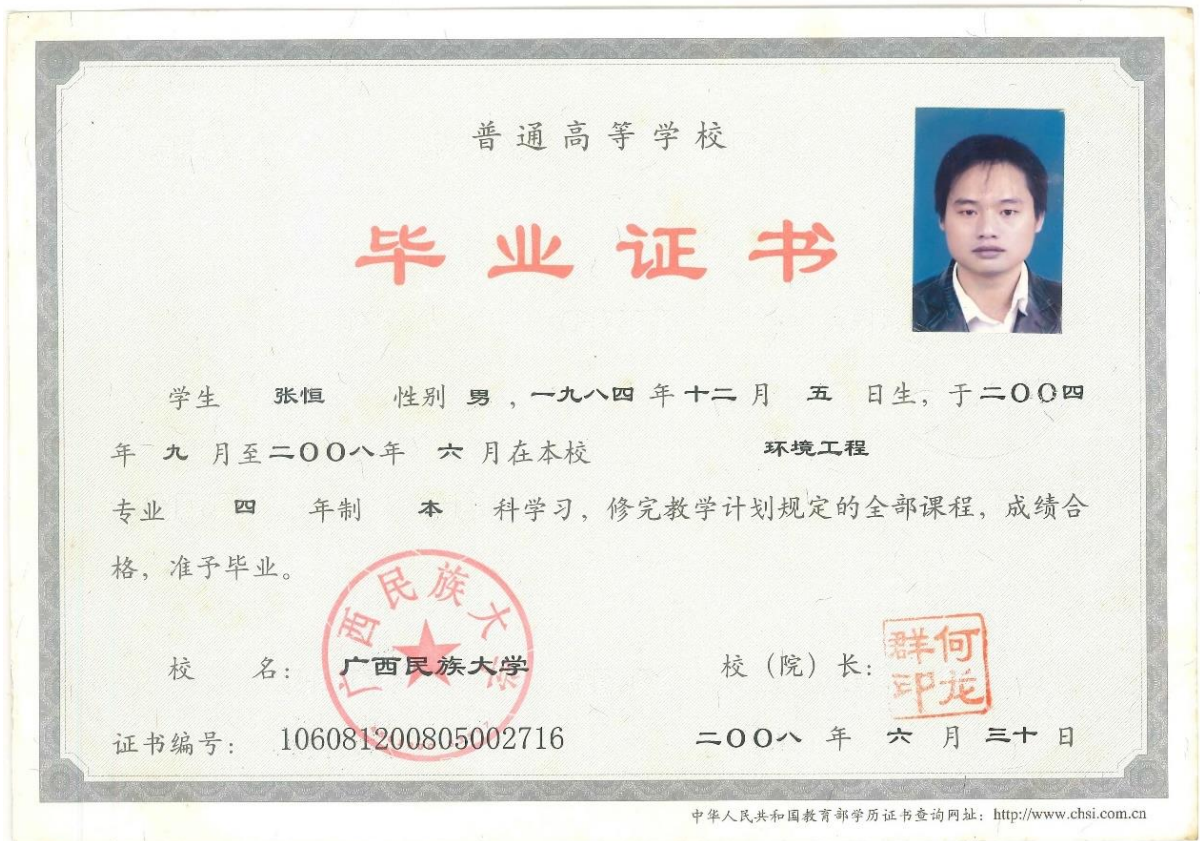 普通高等学校
毕业证书
学生 张恒 性别 男，一九八四 年 十二 月 五 日生，于二〇〇四
年 九 月至二〇〇八年 六 月在本校 环境工程
专业 四 年制 本 科学习，修完教学计划规定的全部课程，成绩合
格，准予毕业。
广西民族大学
校 名： 广西民族大学 校（院）长：
何龙群印
证书编号： 106081200805002716 二〇〇八 年 六 月 三十 日
中华人民共和国教育部学历证书查询网址：http://www.chsi.com.cn